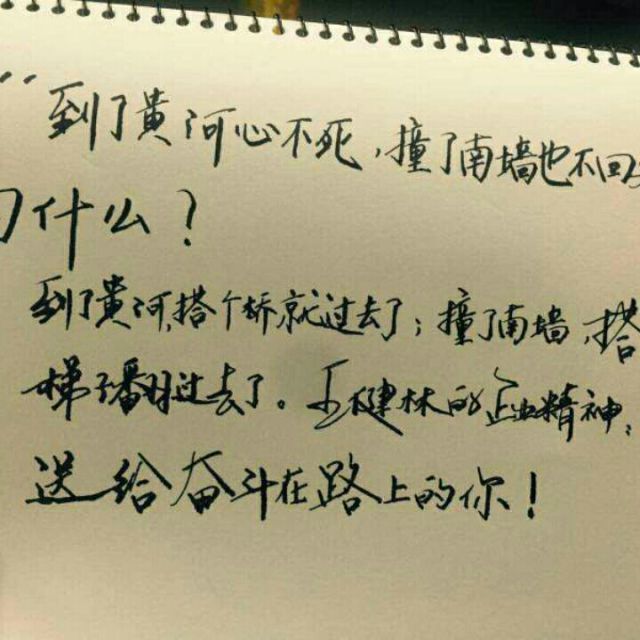 “到了黄河心不死，撞了南墙也不回
什么？
到了黄河，搭个桥就过去了；撞了南墙，搭
梯子翻过去了。王健林的企业精神，
送给奋斗在路上的你！